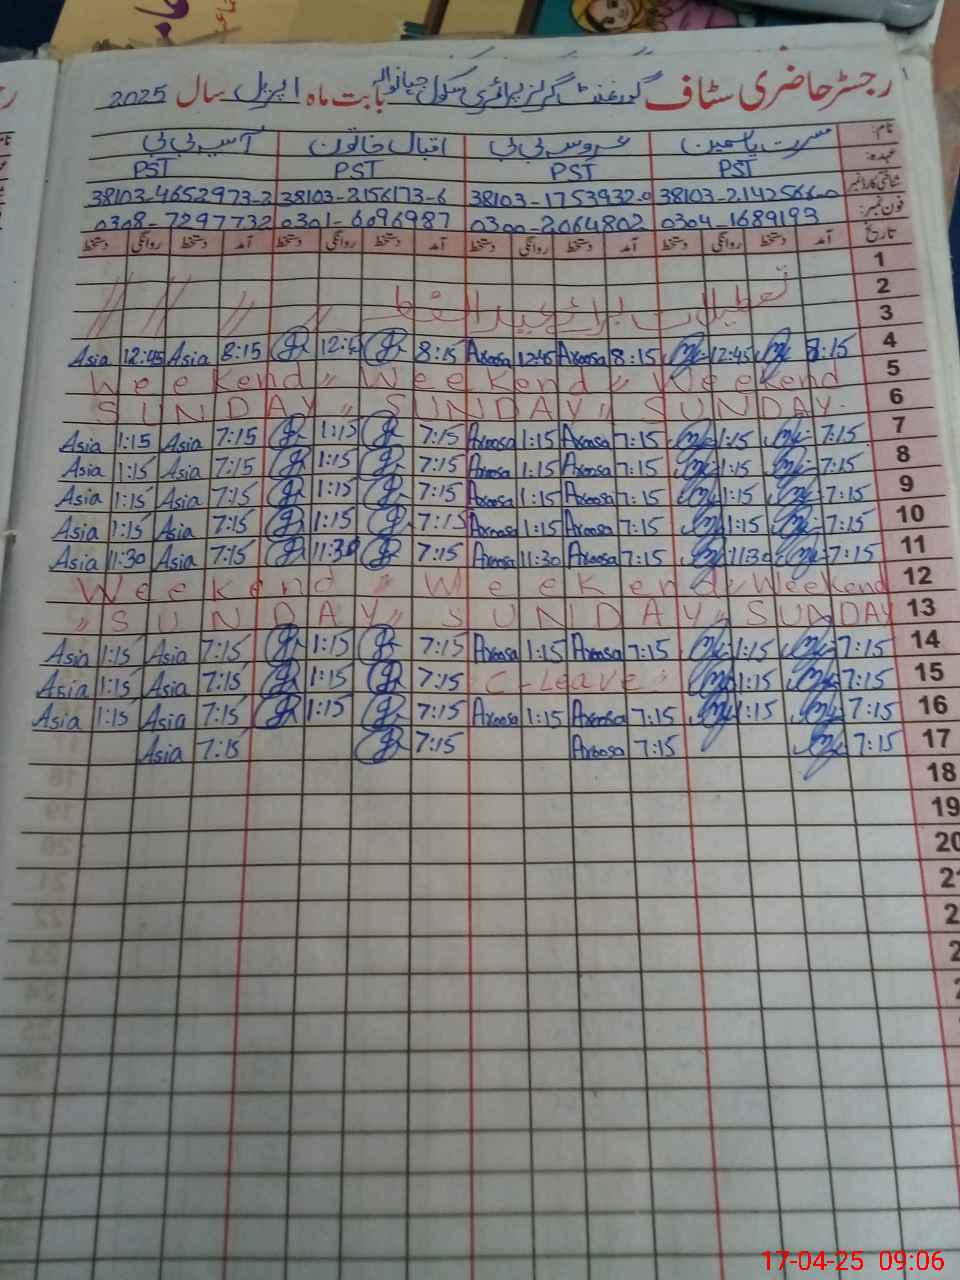 رجسٹر حاضری سٹاف گورنمنٹ گرلز پرائمری سکول بابت ماہ اپریل سال 2025
نام: مسرت یاسمین عروس بی بی اقبال خاتون آسیہ بی بی
عہدہ: PST PST PST PST
شناختی کارڈ نمبر 38103-2142566-0 38103-1753932-0 38103-2156173-6 38103-4652973-2
فون نمبر: 0304-1689193 0300-2064802 0301-6096987 0308-7297732
تاریخ آمد دستخط روانگی دستخط آمد دستخط روانگی دستخط آمد دستخط روانگی دستخط آمد دستخط روانگی دستخط
1
2
تعطیلات برائے عید الفطر // // // //
3
4 8:15 12:45 8:15 Aroosa 12:45 Aroosa 8:15 12:45 8:15 Asia 12:45 Asia
Weekend " Weekend " Weekend 5
SUNDAY " SUNDAY " SUNDAY 6
7 7:15 1:15 7:15 Aroosa 1:15 Aroosa 7:15 1:15 7:15 Asia 1:15 Asia
8 7:15 1:15 7:15 Aroosa 1:15 Aroosa 7:15 1:15 7:15 Asia 1:15 Asia
9 7:15 1:15 7:15 Aroosa 1:15 Aroosa 7:15 1:15 7:15 Asia 1:15 Asia
10 7:15 1:15 7:15 Aroosa 1:15 Aroosa 7:15 1:15 7:15 Asia 1:15 Asia
11 7:15 11:30 7:15 Aroosa 11:30 Aroosa 7:15 11:30 7:15 Asia 11:30 Asia
Weekend " Weekend " Weekend 12
" SUNDAY " SUNDAY " SUNDAY 13
14 7:15 1:15 7:15 Aroosa 1:15 Aroosa 7:15 1:15 7:15 Asia 1:15 Asia
15 7:15 1:15 C-Leave 7:15 1:15 7:15 Asia 1:15 Asia
16 7:15 1:15 7:15 Aroosa 1:15 Aroosa 7:15 1:15 7:15 Asia 1:15 Asia
17 7:15 7:15 Aroosa 7:15 7:15 Asia
18
19
20
17-04-25 09:06